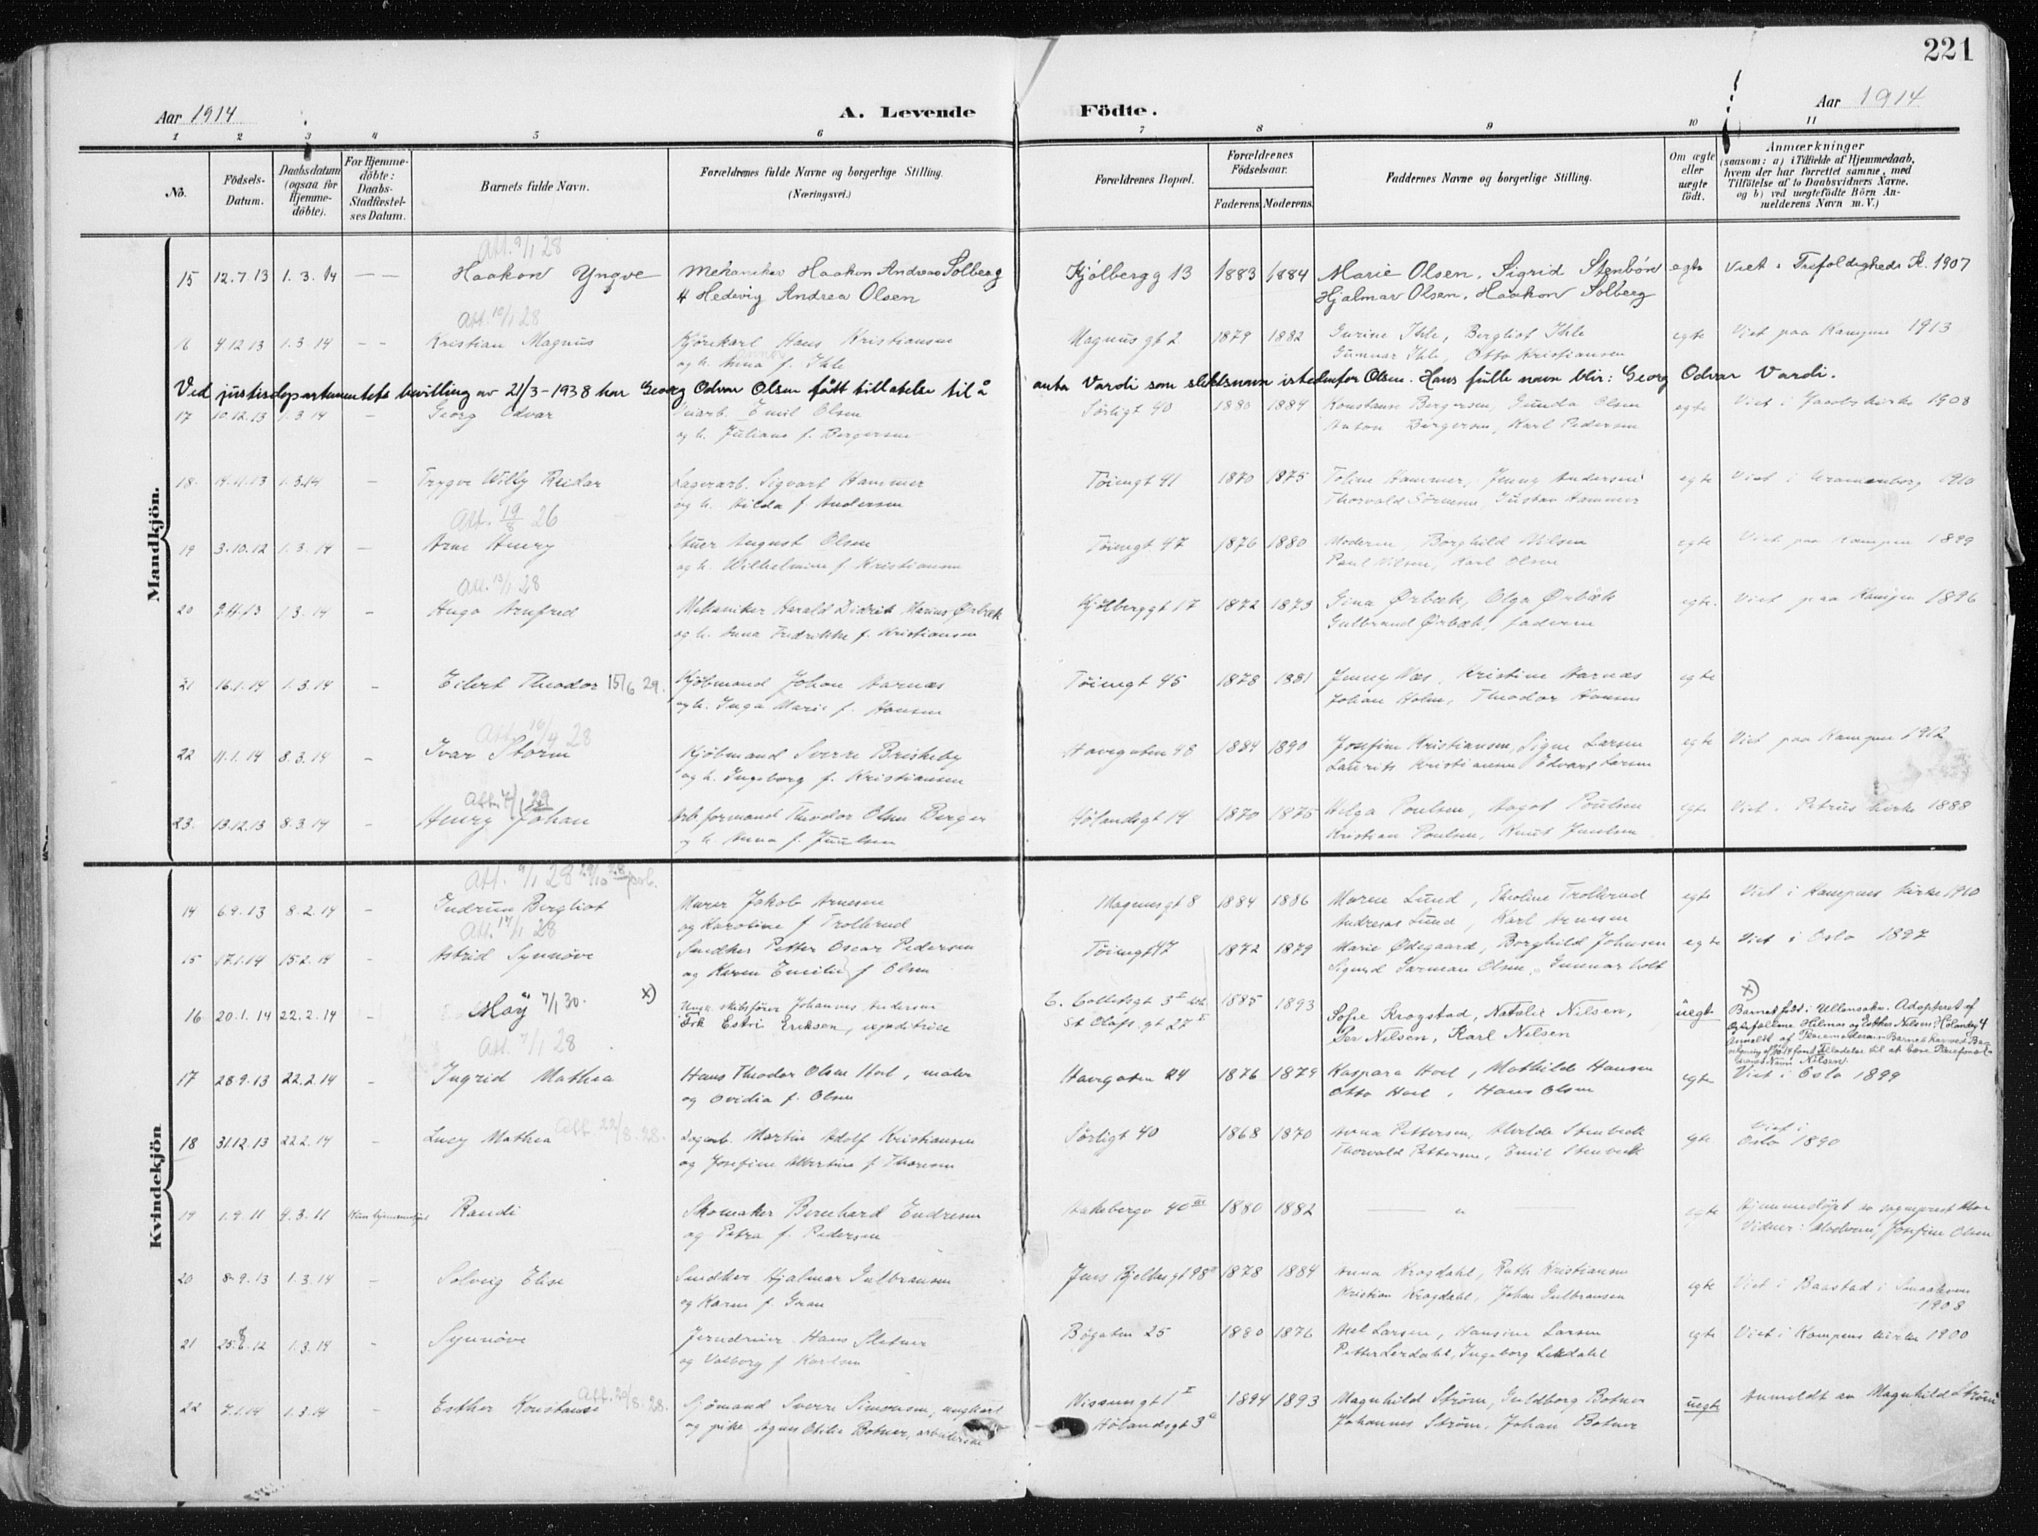 221
Aar 1914
A. Levende Födte.
Aar 1914
1 2 3 4 5 6 7 8 9 10 11
No.
Födsels-
Datum.
Daabsdatum
(ogsaa for
Hjemme-
döbte).
For Hjemme-
döbte:
Daabs-
Stadfæstel-
ses Datum.
Barnets fulde Navn.
Forældrenes fulde Navne og borgerlige Stilling.
(Næringsvei.)
Forældrenes Bopæl.
Forældrenes
Födselsaar.
Faderens. Moderens.
Faddernes Navne og borgerlige Stilling.
Om ægte
eller
uægte
födt.
Anmærkninger
(saasom: a) i Tilfælde af Hjemmedaab,
hvem der har forrettet samme, med
Tilföielse af to Daabsvidners Navne.
og b) ved uegtefödte Börn An-
melderens Navn m. V.)
Mandkjön.
Att. 9/1 28
15 12.7.13 1.3.14 — — Haakon Yngve Mekaniker Haakon Andreas Solberg Kjölbergg 13 1883 1884 Marie Olsen, Sigrid Stenbön egte Viet i Trefoldigheds K. 1907
& Hedevig Andrea Olsen Hjalmar Olsen, Haakon Solberg
Att. 10/1 28
16 4.12.13 1.3.14 — — Kristian Magnus Kjörekarl Hans Kristiansen Magnus gt 2 1879 1882 Gurine Ihle, Bergliot Ihle egte Viet paa Kampen 1913
og h. Anna f. Ihle Gunnar Ihle, Otto Kristiansen
Ved justisdepartementets bevilling av 21/3-1938 har Georg Odvar Olsen fått tillatelse til å anta Vardi som slektsnavn istedenfor Olsen. Hans fulle navn blir: Georg Odvar Vardi.
17 10.12.13 1.3.14 — Georg Odvar Emil Olsen Sörligt 40 1880 1884 Konstanse Bergersen, Gunda Olsen egte Viet i Jacobs kirke 1908
og h. Juliane f. Bergersen Anton Bergersen, Karl Pedersen
18 1.3.14 — Trygve Willy Reidar Lagerarb. Sigvart Hammer Töiengt 41 1870 1875 Toline Hammer, Jenny Andersen egte Viet i Uranienborg 1910
og h. Hilda f. Andersen Thorvald Sörensen Gustav Hammer
Att. 19/8 26
19 3.10.12 1.3.14 — Arne Henry August Olsen Töiengt 47 1876 1880 Moderen Borghild Nilsen egte Viet paa Kampen 1899
og h. Wilhelmine f. Kristiansen Paul Nilsen, Karl Olsen
Att. 13/1 28
20 1.3.14 — Hugo Arnfred Mekaniker Harald Didrik Marius Ørbæk Kjölberggt 17 1872 1873 Gina Ørbæk, Olga Ørbæk egte. Viet paa Kampen 1896
og h. Anna Fredrikke f. Kristiansen Gulbrand Ørbæk, faderen
21 16.1.14 1.3.14 — Eilert Theodor 15/6 29. Kjöbmand Johan Aarnæs Töiengt 45 1878 1881 Jenny Næs, Kristine Aarnæs egte
og h. Inga Marie f. Hansen Johan Holm, Theodor Hansen
Att. 16/4 28
22 11.1.14 8.3.14 — Ivar Storm Kjöbmand Sverre Briskeby Havegaten 48 1884 1890 Josefine Kristiansen, Signe Larsen egte Viet paa Kampen 1912
og h. Ingeborg f. Kristiansen Laurits Kristiansen Edvart Larsen
Att. 7/1 29
23. 13.12.13 8.3.14 — Henry Johan Arb.formand Theodor Olsen Berger Hölandsgt 14 1870 1875 Helga Poulsen, Aagot Poulsen egte Viet i Petrus kirke 1888
og h. Anna f. Juulsen Kristian Poulsen, Knut Juulsen
Kvindekjön
Att. 9/1 28
14 6.9.13 8.2.14 — Gudrun Bergliot Murer Jakob Arnesen Magnusgt 8 1884 1886 Marie Lund, Theoline Trollerud egte Viet i Kampens kirke 1910
og Karoline f Trollerud Andreas Lund, Karl Arnesen
Att. 17/1 28
15 17.1.14 15.2.14 — Astrid Synnöve Snedker Petter Oscar Pedersen Töiengt 47 1872 1879 Marie Ødegaard, Borghild Johnsen egte Viet i Oslo 1897
og Karen Emilie f Olsen Sigurd Garman Olsen, Gunnar Holt
16 20.1.14 22.2.14 — May 7/1 30. x) Johannes Andersen C. Colletsgt 3 1885 1893 Sofie Krogstad, Natalie Nilsen, uegt x)
Frk Estri Eriksen, expeditrice St Olafs gt 27 Per Nilsen, Karl Nilsen
Barnet födt i Ullensaker. Adopteret af
Egtefællene Hilmar og Esther Nilsen,
Att. 7/1 28
17 28.9.13 22.2.14 — Ingrid Mathea Hans Theodor Olsen Hoel, maler Havegaten 24 1876 1879 Kaspara Hoel, Mathilde Hansen egte Viet i Oslo 1899
og Ovidia f. Olsen Otto Hoel, Hans Olsen
18 31.12.13 22.2.14 — Lucy Mathea Att 22/8.28. Lagerarb. Martin Adolf Kristiansen Sörligt 40 1868 1870 Anna Pettersen, Alvilde Stenbeck egte Viet i Oslo 1890
og Josefine Albertine f. Thoresen Thorvald Pettersen, Emil Stenbeck
19 1.9.11 4.3.11 Randi Skomaker Bernhard Endresen Aakebergv 40 III 1880 1882 — " — egte Hjemmedöpt av sogneprest
og Petra f. Pedersen Vidner: Moderen, Josefine Olsen
20 8.9.13 1.3.14 — Solveig Else Snedker Hjalmar Gulbransen Jens Bjelkesgt 48 1878 1884 Anna Krogdahl, Ruth Kristiansen egte Viet i Baastad i Smaalenene 1908
og Karen f. Gran Kristian Krogdahl, Johan Gulbransen
21 25.8.12 1.3.14 — Synnöve Jerndreier Hans Sletner Bögaten 25 1880 1876 Larsen, Hansine Larsen egte Viet i Kampens kirke 1900
og Valborg f. Karlsen Petter Lerdahl, Ingeborg Lerdahl
22 7.1.14 1.3.14 — Esther Konstanse Att. 29/8.28. Sjömand Sverre Simonsen, ungkarl Nissensgt 1 I 1894 1893 Magnhild Ström, Guldborg Botner uegte Anmeldt av Magnhild Ström
og pike Agnes Otilie Botner, arbeiderske Hölandsgt 3 Johannes Ström, Johan Botner